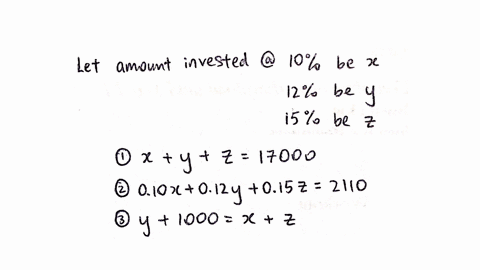 Let amount invested @ 10% be x
12% be y
15% be z
① x + y + z = 17000
② 0.10x + 0.12y + 0.15z = 2110
③ y + 1000 = x + z